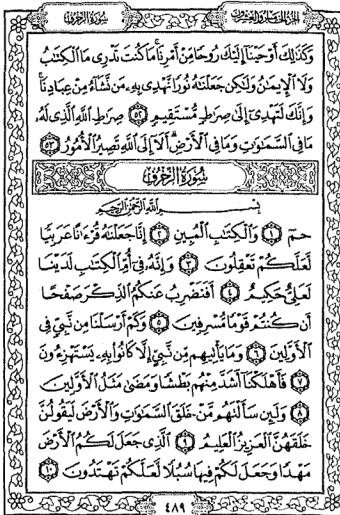 الجزء الخامس والعشرون
سورة الزخرف
وَكَذَٰلِكَ أَوْحَيْنَا إِلَيْكَ رُوحًا مِّنْ أَمْرِنَا ۚ مَا كُنتَ تَدْرِي مَا الْكِتَٰبُ
وَلَا الْإِيمَٰنُ وَلَٰكِن جَعَلْنَٰهُ نُورًا نَّهْدِي بِهِ مَن نَّشَاءُ مِنْ عِبَادِنَا ۚ
وَإِنَّكَ لَتَهْدِي إِلَىٰ صِرَٰطٍ مُّسْتَقِيمٍ ۝٥٢ صِرَٰطِ اللَّهِ الَّذِي لَهُ
مَا فِي السَّمَٰوَٰتِ وَمَا فِي الْأَرْضِ ۗ أَلَا إِلَى اللَّهِ تَصِيرُ الْأُمُورُ ۝٥٣
سورة الزخرف
بِسْمِ اللَّهِ الرَّحْمَٰنِ الرَّحِيمِ
حمٓ ۝١ وَالْكِتَٰبِ الْمُبِينِ ۝٢ إِنَّا جَعَلْنَٰهُ قُرْءَٰنًا عَرَبِيًّا
لَّعَلَّكُمْ تَعْقِلُونَ ۝٣ وَإِنَّهُ فِي أُمِّ الْكِتَٰبِ لَدَيْنَا
لَعَلِيٌّ حَكِيمٌ ۝٤ أَفَنَضْرِبُ عَنكُمُ الذِّكْرَ صَفْحًا
أَن كُنتُمْ قَوْمًا مُّسْرِفِينَ ۝٥ وَكَمْ أَرْسَلْنَا مِن نَّبِيٍّ فِي
الْأَوَّلِينَ ۝٦ وَمَا يَأْتِيهِم مِّن نَّبِيٍّ إِلَّا كَانُوا بِهِ يَسْتَهْزِءُونَ
۝٧ فَأَهْلَكْنَا أَشَدَّ مِنْهُم بَطْشًا وَمَضَىٰ مَثَلُ الْأَوَّلِينَ
۝٨ وَلَئِن سَأَلْتَهُم مَّنْ خَلَقَ السَّمَٰوَٰتِ وَالْأَرْضَ لَيَقُولُنَّ
خَلَقَهُنَّ الْعَزِيزُ الْعَلِيمُ ۝٩ الَّذِي جَعَلَ لَكُمُ الْأَرْضَ
مَهْدًا وَجَعَلَ لَكُمْ فِيهَا سُبُلًا لَّعَلَّكُمْ تَهْتَدُونَ ۝١٠
٤٨٩